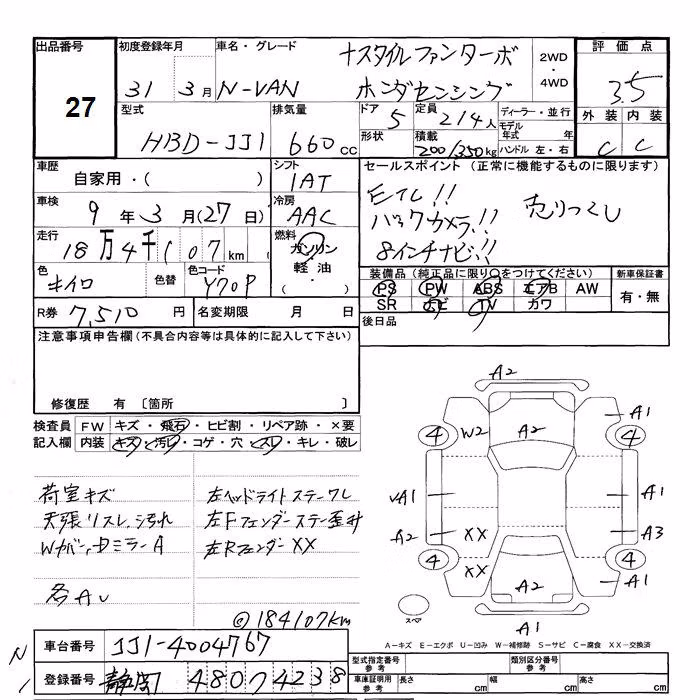 出品番号
27
初度登録年月
31年 3月
車名・グレード
N-VAN
+スタイルファンターボ
ホンダセンシング
2WD・4WD
評価点
3.5
外装 内装
C C
型式
HBD-JJ1
排気量
660cc
ドア
5
形状
定員
2/4人
積載
200/350kg
ディーラー・並行
モデル年式 年
ハンドル 左・右
車歴
自家用・( )
車検
9年3月(27日)
走行
18万4千107km
色
キイロ
色替
色コード
Y70P
シフト
IAT
冷房
AAC
燃料
ガソリン
軽油・( ・ )
セールスポイント(正常に機能するものに限ります)
ETC!!
バックカメラ!!
8インチナビ!!
売りつくし
装備品(純正品に限り○をつけてください)
PS PW ABS エアB AW
SR ナビ TV カワ
新車保証書
有・無
R券 7,510円
名変期限 月 日
後日品
注意事項申告欄(不具合内容等は具体的に記入して下さい)
修復歴 有 〔箇所 〕
検査員記入欄
FW キズ・飛石・ヒビ割・リペア跡・×要
内装 キズ・汚レ・コゲ・穴・スレ・キレ・破レ
荷室キズ
天張リスレ、汚れ
Wカバー、ドミラーA
各AU
左ヘッドライトステーワレ
左Fフェンダーステー歪み
左RフェンダーXX
@184107km
A2
4 W2 A2 A1 4
UA1 A1
A2 XX A3
4 XX A2 4 A1
A1
スペア
A-キズ E-エクボ U-凹み W-補修跡 S-サビ C-腐食 XX-交換済
車台番号 JJ1-4004767
登録番号 静岡 480 つ 4238
型式指定番号 参考
類別区分番号 参考
車庫証明用 参考
長さ cm 幅 cm 高さ cm